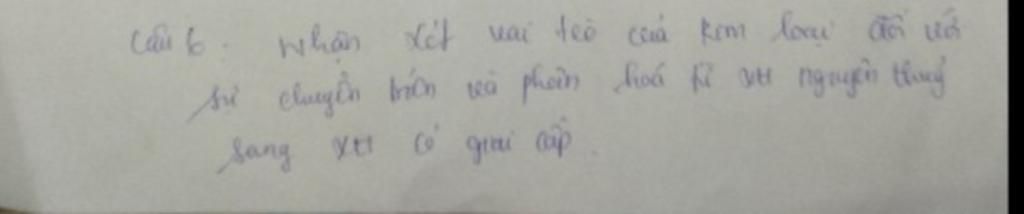 Câu 6: Nhận xét vai trò của kim loại đối với
sự chuyển biến và phân hoá từ XH nguyên thuỷ
sang XH có giai cấp.